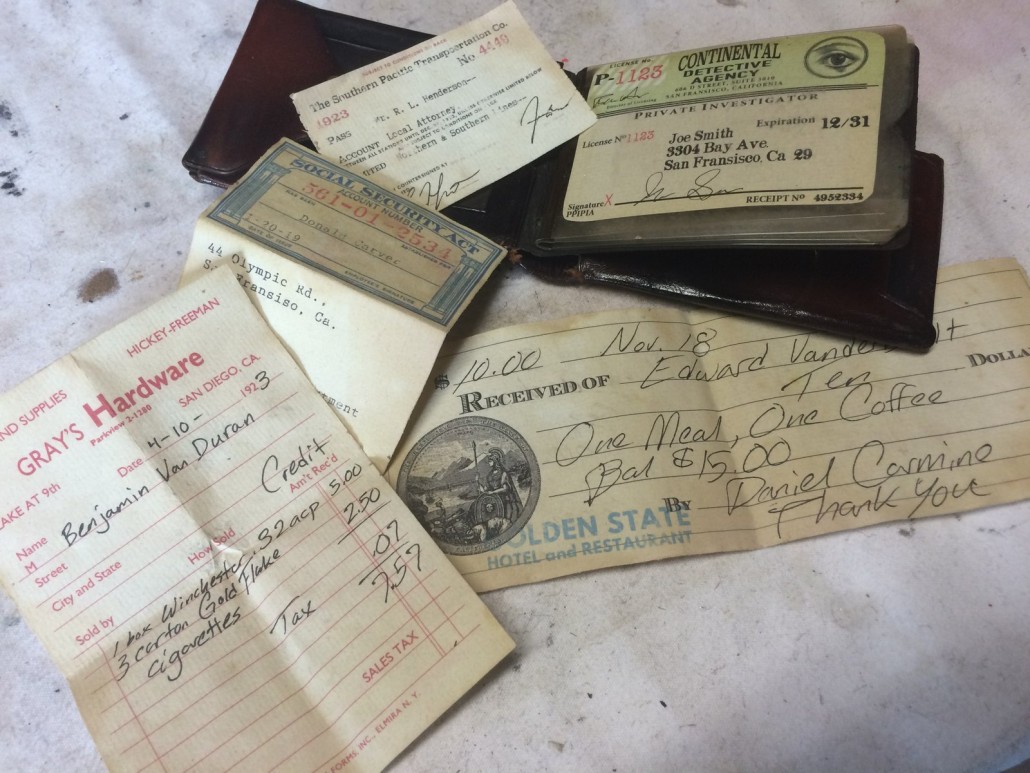 SUBJECT TO CONDITIONS ON BACK
The Southern Pacific Transportation Co.
1923 No 4449
PASS Mr. R. L. Henderson--
ACCOUNT Local Attorney
Southern Lines--
COUNTERSIGNED BY
SOCIAL SECURITY ACT
ACCOUNT NUMBER
561-01-2534
Donald Carver
-20-19
DATE OF ISSUE EMPLOYEE'S SIGNATURE
44 Olympic Rd.,
Fransiso, Ca.
LICENSE No.
P-1123
CONTINENTAL
DETECTIVE
AGENCY
D STREET, SUITE
SAN FRANCISCO, CALIFORNIA
PRIVATE INVESTIGATOR
License Nº 1123 Joe Smith Expiration 12/31
3304 Bay Ave.
San Fransisco, Ca 29
Signature X
PPIPIA RECEIPT Nº 4952334
$ 10.00 Nov. 18
RECEIVED OF Edward
Ten DOLLA
One Meal, One Coffee
Bal $15.00
By Daniel Carmine
Thank You
OLDEN STATE
HOTEL and RESTAURANT
HICKEY-FREEMAN
ND SUPPLIES
GRAY'S Hardware
Parkview 2-1280
LAKE AT 9th SAN DIEGO, CA.
Date 4-10- 1923
Name Benjamin Van Duran
M
Street
City and State Credit
Sold by How Sold Am't Rec'd
1 box Winchester .32 acp 5.00
3 carton Gold Flake 2.50
cigarettes
Tax .07
7.57
SALES TAX
FORMS, INC., ELMIRA N. Y.